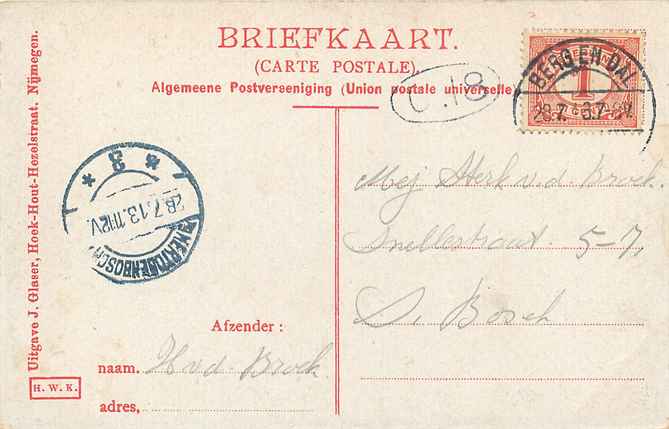 BRIEFKAART.
(CARTE POSTALE).
Algemeene Postvereeniging (Union postale universelle)
0.18
BERG EN DAL
1
Uitgave J. Glaser, Hoek-Hout-Hezelstraat, Nijmegen.
H. W. K.
* 3 *
28.7.13.11-12V.
'S HERTOGENBOSCH
Mej Sterk v.d. Broek.
Snellestraat. 5-7,
S. Bosch
Afzender:
naam. H v d Broek.
adres,